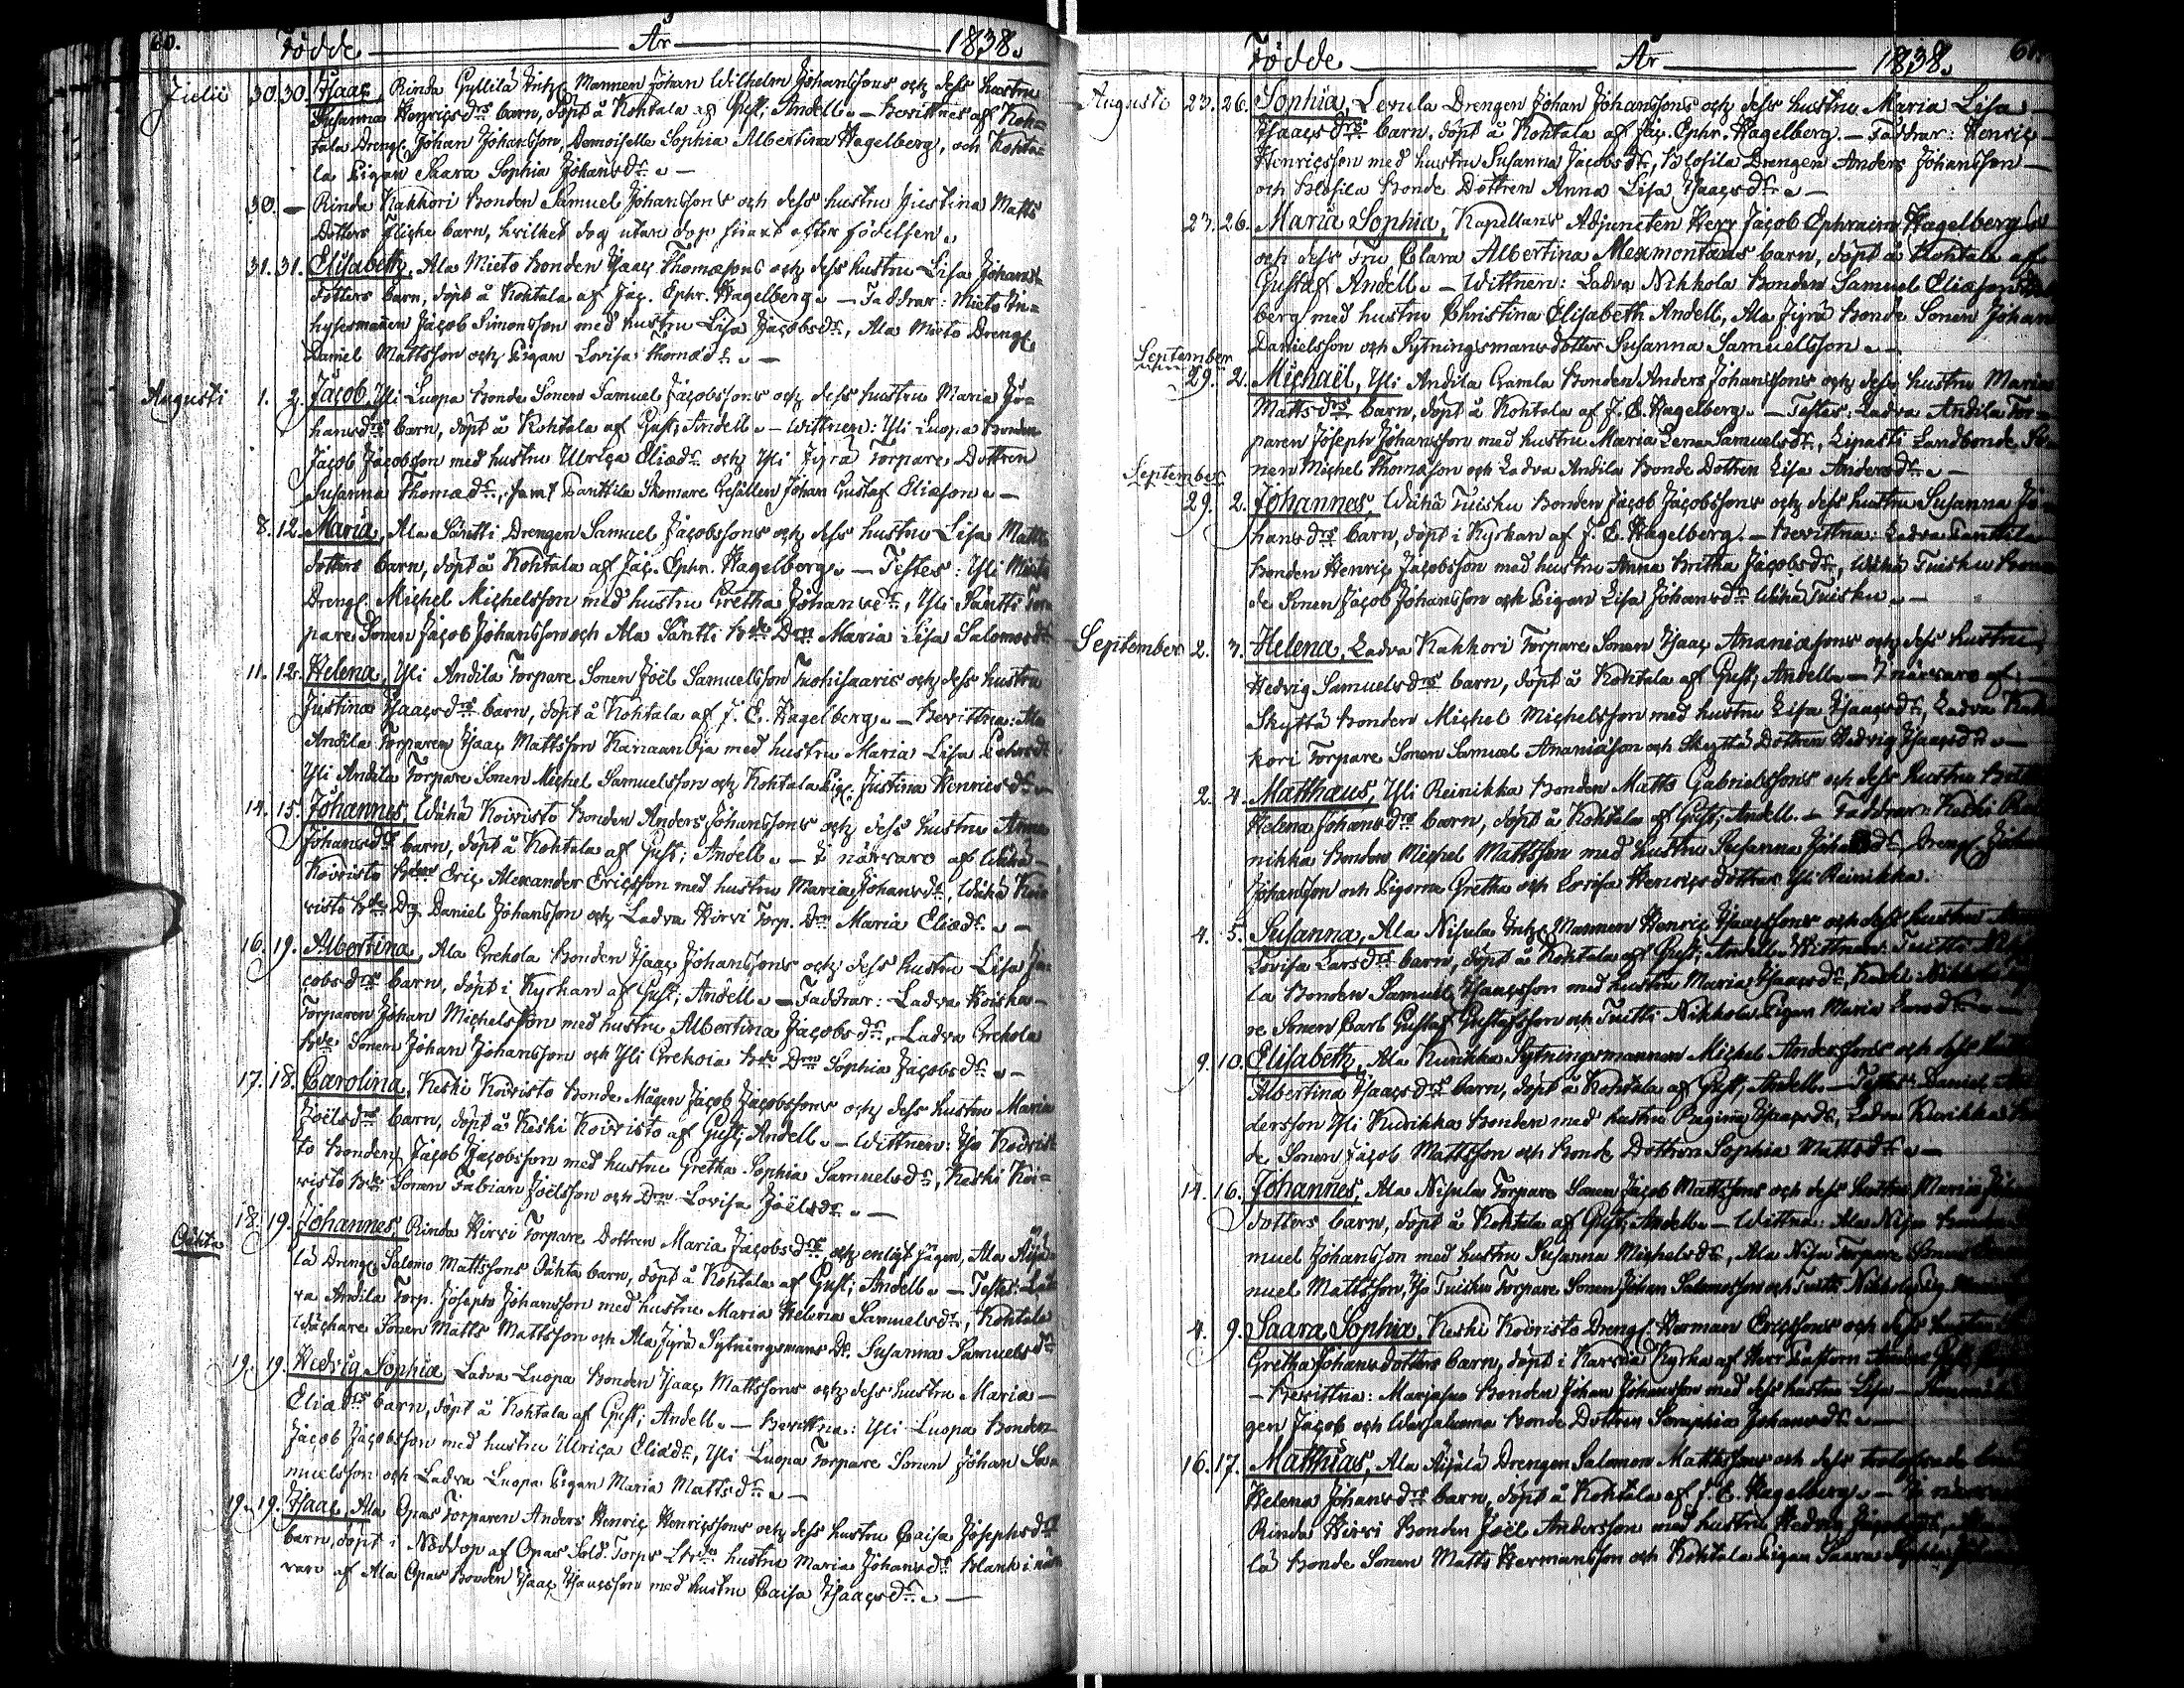 60. Födde År 1838.
Julii 30. 30. Isaac, Rinda Gyllilä Inhs. Mannen Johan Wilhelm Johanssons och dess hustru
Susanna Henricsdrs barn, döpt å Kohtala af Gust; Andell. — Bevittnes af Koh=
tala Dreng. Johan Johansson, Demoiselle Sophia Albertina Hagelberg, och Kohta=
la Pigan Saara Sophia Johansdr. —
30. — Rinda Kakkori Bonden Samuel Johanssons och dess hustru Justina Matts
Dotters Flicke barn, hvilket dog utan dop straxt efter födelsen.
31. 31. Elisabeth, Ala Mieto Bonden Isaac Thomæsons och dess hustru Lisa Johans=
dotters barn, döpt å Kohtala af Jac. Ephr. Hagelberg. — Faddrar: Mieto In=
hysesmannen Jacob Simonsson med hustru Lisa Jacobsdr, Ala Mieto Dreng.
Daniel Mattsson och Pigan Lovisa Thomædr. —
Augusti 1. 2. Jacob, Yli Luopa Bonde Sonen Samuel Jacobssons och dess hustru Maria Jo=
hansdrs barn, döpt å Kohtala af Gust; Andell. — Wittnen: Yli Luopa Bonden
Jacob Jacobsson med hustru Ulrica Eliædr och Yli Jyrä Torpare Dottren
Susanna Thomædr, samt Panttila Skomare Gesällen Johan Gustaf Eliæson. —
8. 12. Maria, Ala Säntti Drengen Samuel Jacobssons och dess hustru Lisa Matts
dotters barn, döpt å Kohtala af Jac. Ephr. Hagelberg. — Testes: Yli Mieto
Dreng. Michel Michelsson med hustru Gretha Johansdr, Yli Säntti Tor=
pare Sonen Jacob Johansson och Ala Säntti Bde Drn Maria Lisa Salomosdr
11. 12. Helena, Yli Andila Torpare Sonen Joël Samuelsson Tuohisaaris och dess hustru
Justina Isaacsdrs barn, döpt å Kohtala af J. E. Hagelberg. — Bevittna: Ala
Andila Torparen Isaac Mattsson Kanaanoja med hustru Maria Lisa
Yli Andila Torpare Sonen Michel Samuelsson och Kohtala Pig. Justina Henricsdr.
14. 15. Johannes, Wähä Koivisto Bonden Anders Johanssons och dess hustru Anna
Johansdrs barn, döpt å Kohtala af Gust; Andell. — I närvaro af Wähä
Koivisto Bden Eric Alexander Ericsson med hustru Maria Johansdr, Wähä Koi
visto Bde Dg. Daniel Johansson och Ladva Hirvi Torp. Drn Maria Eliædr. —
16. 19. Albertina, Ala Grekola Bonden Isaac Johanssons och dess hustru Lisa Ja
cobsdrs barn, döpt i Kyrkan af Gust; Andell. — Faddrar: Ladva
Torparen Johan Michelsson med hustru Albertina Jacobsdr, Ladva Grekola
Bde Sonen Johan Johansson och Yli Grekola Bde Drn Sophia Jacobsdr. —
17. 18. Carolina, Keski Koivisto Bonde Mågen Jacob Jacobssons och dess hustru Maria
Joëlsdrs barn, döpt å Keski Koivisto af Gust; Andell. — Wittnen: Iso Koivis
to Bonden Jacob Jacobsson med hustru Gretha Sophia Samuelsdr, Keski Koi=
visto Bde Sonen Fabian Joëlsson och Drn Lovisa Joëlsdr. —
Oäkta 18. 19. Johannes, Rinda Hirvi Torpare Dottren Maria Jacobsdrs och enligt sägen, Ala Äijä
lä Dreng. Salomo Mattssons Oäkta barn, döpt å Kohtala af Gust; Andell. — Testes: Lad
va Andila Torp. Joseph Johansson med hustru Maria Helena Samuelsdr, Kohtala
Wäckare Sonen Matts Mattsson och Ala Jyrä Sytningsmans Dr. Susanna Samuelsdr
19. 19. Hedvig Sophia, Ladva Luopa Bonden Isaac Mattssons och dess hustru Maria
Eliædrs barn, döpt å Kohtala af Gust; Andell. — Bevittna: Yli Luopa Bonden
Jacob Jacobsson med hustru Ulrica Eliædr, Yli Luopa Torpare Sonen Johan Sa
muelsson och Ladva Luopa Pigan Maria Mattsdr. —
19. 19. Isaac, Ala Opas Torparen Anders Henric Henricssons och dess hustru Caisa Josephsdrs
barn, döpt i Nöddop af Opas Sold. Torps hustru Maria Johansdr Blank i när
varo af Ala Opas Bonden Isaac Isaacsson med hustru Caisa Isaacsdr. —
Födde År 1838. 61.
Augusti 23. 26. Sophia, Levula Drengen Johan Johanssons och dess hustru Maria Lisa
Isaacsdrs barn, döpt å Kohtala af Jac. Ephr. Hagelberg. — Faddrar: Henric
Henricsson med hustru Susanna Jacobsdr, Blosila Drengen Anders Johansson
och Blosila Bonde Dottren Anna Lisa Isaacsdr. —
23. 26. Maria Sophia, Kapellans Adjuncten Herr Jacob Ephraim Hagelbergs
och dess Fru Clara Albertina Mexmontans barn, döpt å Kohtala af
Gustaf Andell. — Wittnen: Ladva Nikkola Bonden Samuel Eliæson
berg med hustru Christina Elisabeth Andell, Ala Jyrä Bonde Sonen Johan
Danielsson och Sytningsmansdotter Susanna Samuelsson. —
September 29. 2. Michaël, Yli Andila Gamla Bonden Anders Johanssons och dess hustru Maria
Mattsdrs barn, döpt å Kohtala af J. E. Hagelberg. — Testes: Ladva Andila Tor=
paren Joseph Johansson med hustru Maria Lena Samuelsdr, Lipasti Landbonde So
nen Michel Thomæson och Ladva Andila Bonde Dottren Lisa Andersdr. —
September 29. 2. Johannes, Wähä Tuisku Bonden Jacob Jacobssons och dess hustru Susanna Jo
hansdrs barn, döpt i Kyrkan af J. E. Hagelberg. — Bevittna: Ladva Panttila
Bonden Henric Jacobsson med hustru Anna Britha Jacobsdr, Wähä Tuisku Bon
de Sonen Jacob Johansson och Pigan Lisa Johansdr Wähä Tuisku. —
September 2. 3. Helena, Ladva Kakkori Torpare Sonen Isaac Ananiæsons och dess hustru
Hedvig Samuelsdrs barn, döpt å Kohtala af Gust; Andell. — I närvaro af
Skyttä Bonden Michel Michelsson med hustru Lisa Isaacsdr, Ladva Kak
kori Torpare Sonen Samuel Ananiæson och Skyttä Dottren Hedvig Isaacsdr. —
2. 4. Matthæus, Yli Reinikka Bonden Matts Gabrielssons och dess hustru
Helena Johansdrs barn, döpt å Kohtala af Gust; Andell. — Faddrar: Keski Rei
nikka Bonden Michel Mattsson med hustru Susanna Johansdr, Dreng. Johan
Johansson och Pigorna Gretha och Lovisa Henrics döttrar Yli Reinikka.
4. 5. Susanna, Ala Nisula Inhs. Mannen Henric Isaacssons och dess hustru
Lovisa Larsdrs barn, döpt å Kohtala af Gust; Andell. Wittnen: Tuitti Nikko
la Bonden Samuel Isaacsson med hustru Maria Isaacsdr, Keski Nikkola
re Sonen Carl Gustaf Gustafsson och Tuitti Nikkola Pigan Maria
9. 10. Elisabeth, Ala Kurikka Sytningsmannen Michel Anderssons och dess hustru
Albertina Isaacsdrs barn, döpt å Kohtala af Gust; Andell. — Testes: Daniel An
dersson Yli Kurikka Bonden med hustru Regina Isaacsdr, Ladva Kurikka Bon
de Sonen Jacob Mattsson och Bonde Dottren Sophia Mattsdr. —
14. 16. Johannes, Ala Nisula Torpare Sonen Jacob Mattssons och dess hustru Maria
dotters barn, döpt å Kohtala af Gust; Andell. — Wittna: Ala Nisu Bonden Sa
muel Johansson med hustru Susanna Michelsdr, Ala Nisu Torpare Sonen
nuel Mattsson, Iso Tuisku Torpare Sonen Johan Salomosson och Tuitti Nikkola Pig. Maria
4. 9. Saara Sophia, Keski Koivisto Dreng. Herman Ericssons och dess hustru
Gretha Johansdotters barn, döpt i Karvia Kyrka af Herr Pastorn
— Bevittna: Marjasuo Bonden Johan Johansson med dess hustru Lisa
gen Jacob och Bonde Dottren Seraphia Johansdr. —
16. 17. Matthias, Ala Äijälä Drengen Salomon Mattssons och dess trolofvade
Helena Johansdrs barn, döpt å Kohtala af J. E. Hagelberg. — I närvaro
Rinda Hirvi Bonden Joël Andersson med hustru Hedvig
lä Bonde Sonen Matts Hermansson och Kohtala Pigan Saara Sophia